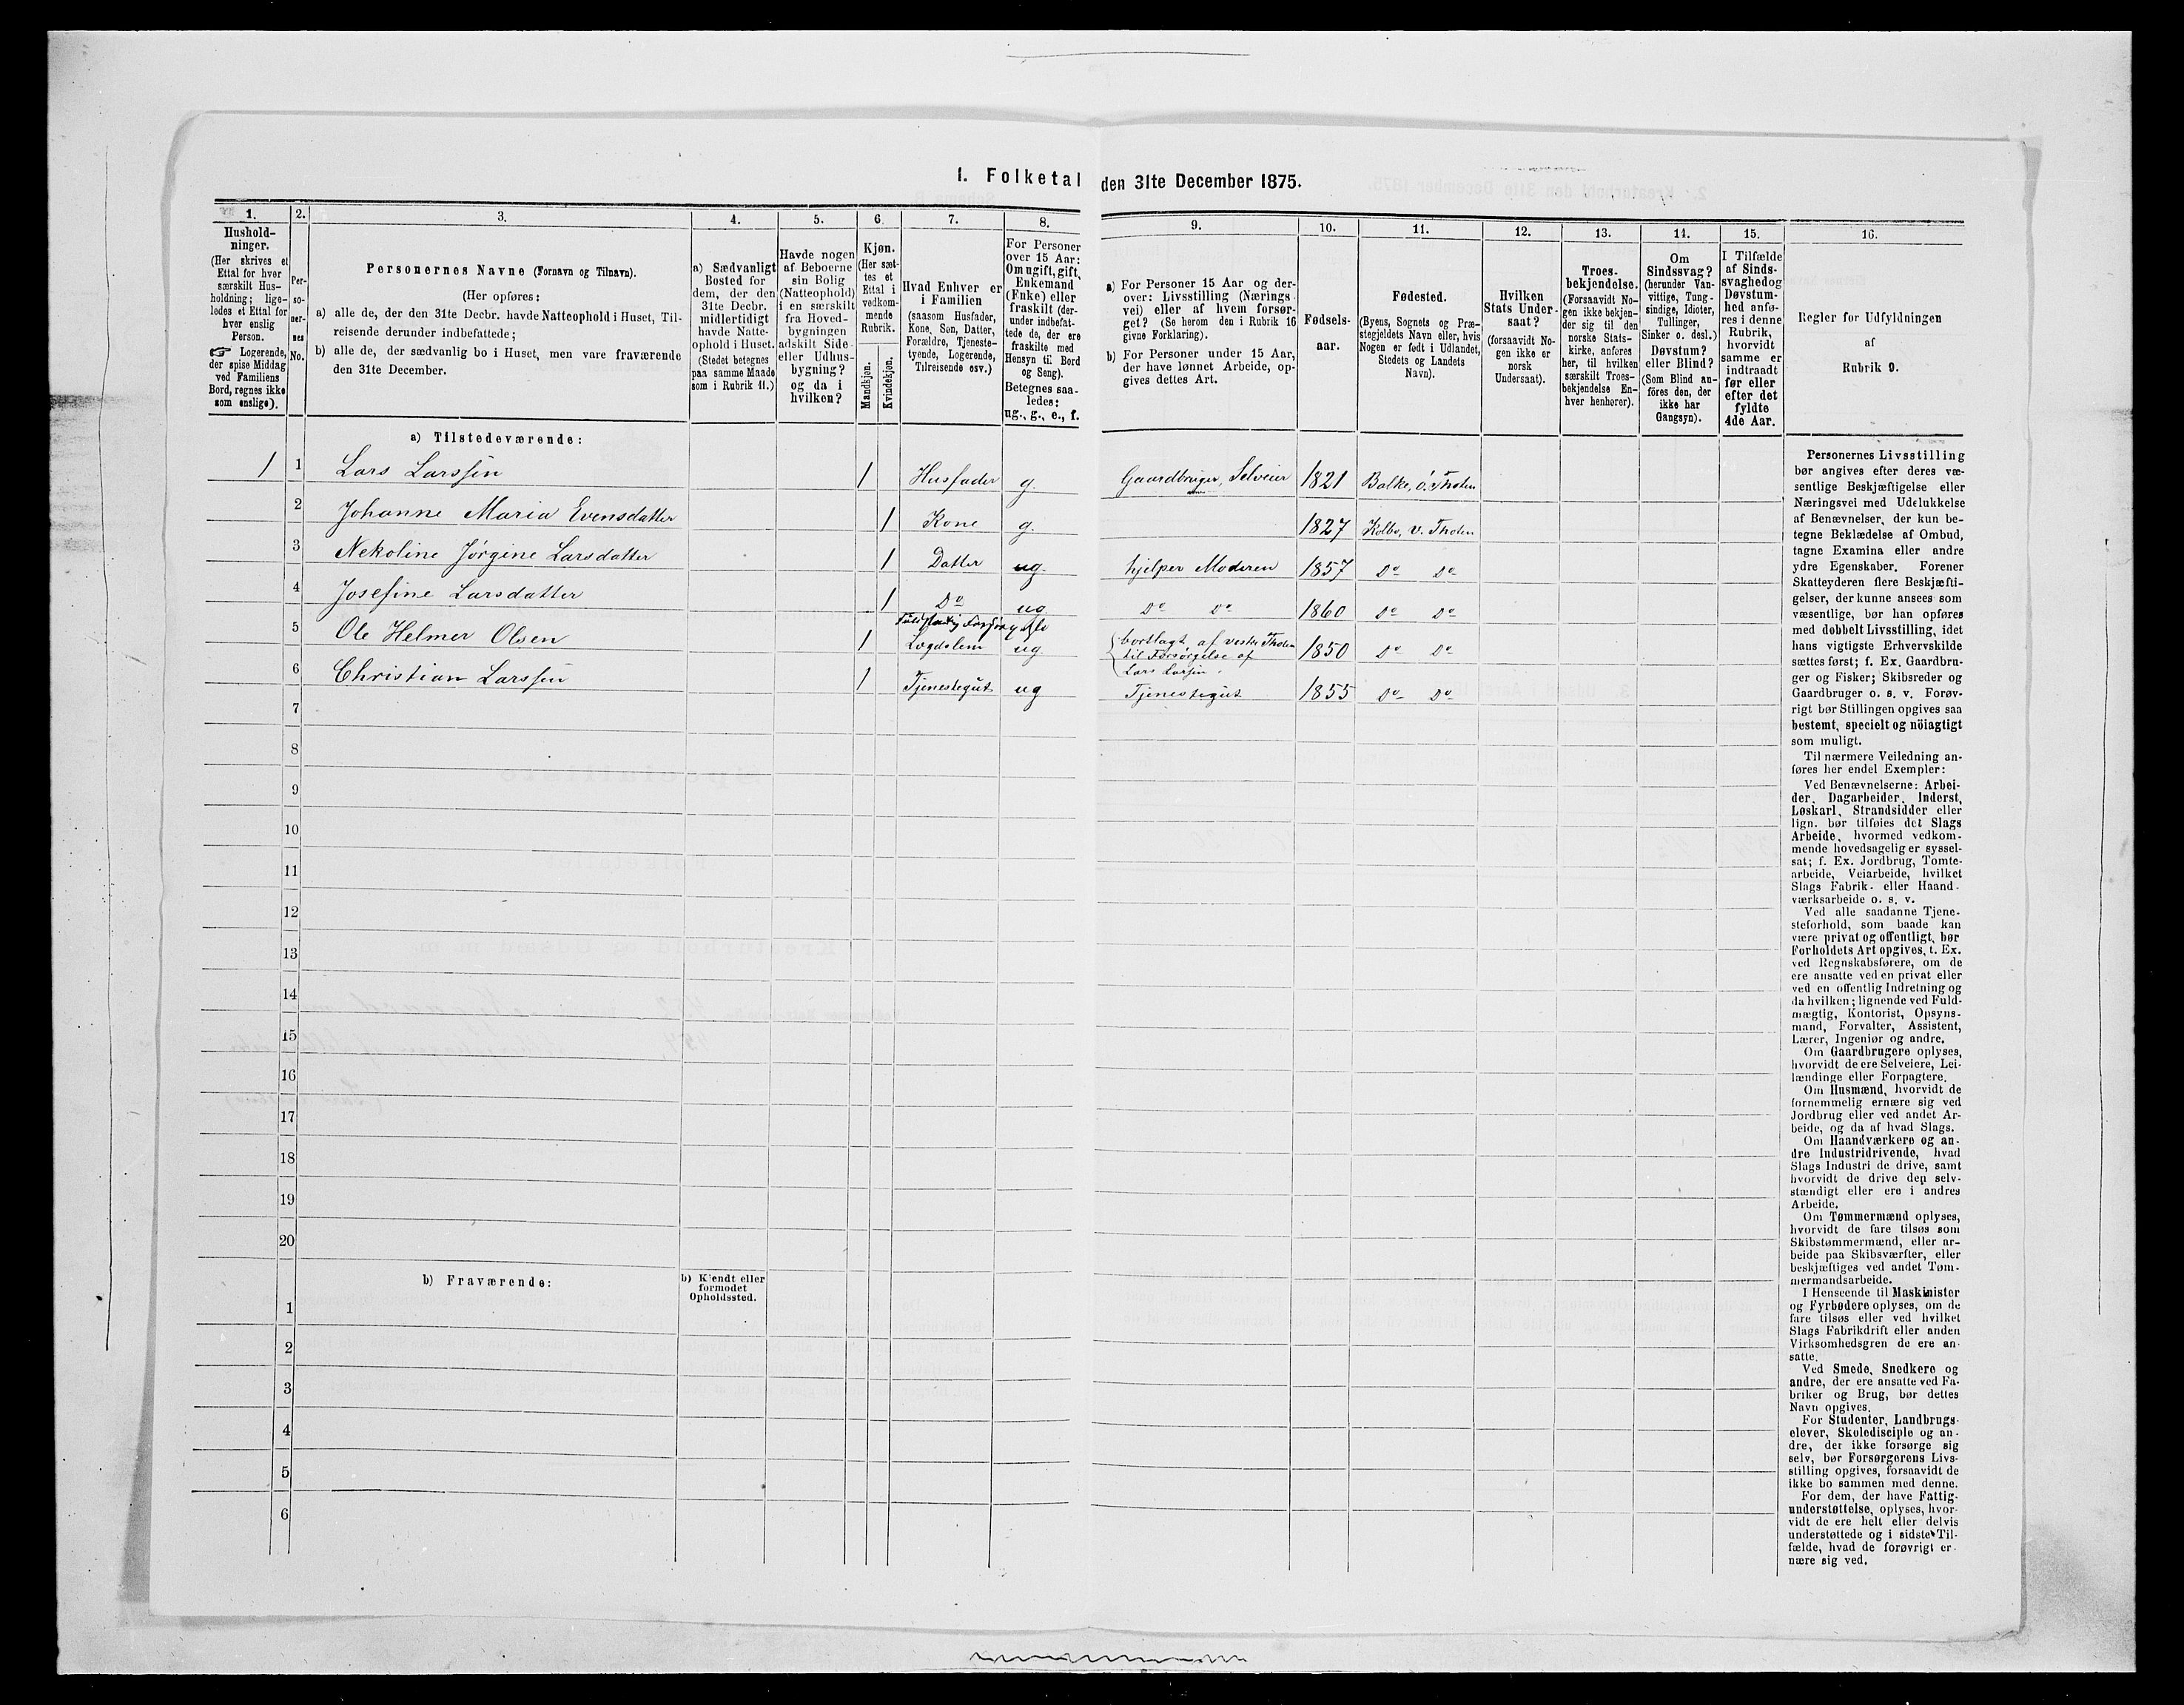 1. Folketal den 31te December 1875.
1. 2. 3. 4. 5. 6. 7. 8. 9. 10. 11. 12. 13. 14. 15. 16.
Hushold-
ninger.
(Her skrives et
Ettal for hver
særskilt Hus-
holdning; lige-
ledes et Ettal for
hver enslig
Person.
☞ Logerende,
der spise Middag
ved Familiens
Bord, regnes ikke
som enslige).
Per-
so-
ner-
nes
No.
Personernes Navne (Fornavn og Tilnavn).
(Her opføres:
a) alle de, der den 31te Decbr. havde Natteophold i Huset, Til-
reisende derunder indbefattede;
b) alle de, der sædvanlig bo i Huset, men vare fraværende
den 31te December.
a) Sædvanligt
Bosted for
dem, der den
31te Decbr.
midlertidigt
havde Natte-
ophold i Huset.
(Stedet betegnes
paa samme Maade
som i Rubrik 11.)
Havde nogen
af Beboerne
sin Bolig
(Natteophold)
i en særskilt
fra Hoved-
bygningen
adskilt Side-
eller Udhus-
bygning?
og da i
hvilken?
Kjøn.
(Her sæt-
tes et
Ettal i
vedkom-
mende
Rubrik.
Mandkjøn.
Kvindekjøn.
Hvad Enhver er
i Familien
(saasom Husfader,
Kone, Søn, Datter,
Forældre, Tjeneste-
tyende, Logerende,
Tilreisende osv.)
For Personer
over 15 Aar:
Om ugift, gift,
Enkemand
(Enke) eller
fraskilt (der-
under indbefat-
tede de, der ere
fraskilte med
Hensyn til Bord
og Seng).
Betegnes saa-
ledes:
ug., g., e., f.
a) For Personer 15 Aar og der-
over: Livsstilling (Nærings-
vei) eller af hvem forsør-
get? (Se herom den i Rubrik 16
givne Forklaring).
b) For Personer under 15 Aar,
der have lønnet Arbeide, op-
gives dettes Art.
Fødsels-
aar.
Fødested.
(Byens, Sognets og Præ-
stegjeldets Navn eller, hvis
Nogen er født i Udlandet,
Stedets og Landets
Navn).
Hvilken
Stats Under-
saat?
(forsaavidt No-
gen ikke er
norsk
Undersaat).
Troes-
bekjendelse.
(Forsaavidt No-
gen ikke bekjen-
der sig til den
norske Stats-
kirke, anføres
her, til hvilken
særskilt Troes-
bekjendelse En-
hver henhører).
Om
Sindssvag?
(herunder Van-
vittige, Tung-
sindige, Idioter,
Tullinger,
Sinker o. desl.)
Døvstum?
eller Blind?
(Som Blind an-
föres den, der
ikke har
Gangsyn).
I Tilfælde
af Sinds-
svaghed og
Døvstum-
hed anfø-
res i denne
Rubrik,
hvorvidt
samme er
indtraadt
før eller
efter det
fyldte
4de Aar.
Regler for Udfyldningen
af
Rubrik 9.
a) Tilstedeværende:
1 1 Lars Larssen 1 Husfader g. Gaardbruger, Selveier 1821 Balke, Ö. Thoten
2 Johanne Maria Evensdatter 1 Kone g. 1827 Kolbo, V. Thoten
3 Nekoline Jørgine Larsdatter 1 Datter ug. hjelper Moderen 1857 Do Do
4 Josefine Larsdatter 1 Do ug Do Do 1860 Do Do
5 Ole Helmer Olsen 1 Lægdslem ug. bortlagt af vestre Thoten
til Forsørgelse af
Lars Larssen. 1850 Do Do
6 Christian Larssen 1 Tjenestegut ug Tjenestegut 1855 Do Do
7
8
9
10
11
12
13
14
15
16
17
18
19
20
b) Fraværende:
b) Kjendt eller
formodet
Opholdssted.
1
2
3
4
5
6
Personernes Livsstilling
bør angives efter deres væ-
sentlige Beskjæftigelse eller
Næringsvei med Udelukkelse
af Benævnelser, der kun be-
tegne Beklædelse af Ombud,
tagne Examina eller andre
ydre Egenskaber. Forener
Skatteyderen flere Beskjæfti-
gelser, der kunne ansees som
væsentlige, bør han opføres
med dobbelt Livsstilling, idet
hans vigtigste Erhvervskilde
sættes først; f. Ex. Gaardbru-
ger og Fisker; Skibsreder og
Gaardbruger o. s. v. Forøv-
rigt bør Stillingen opgives saa
bestemt, specielt og nöiagtigt
som muligt.
Til nærmere Veiledning an-
føres her endel Exempler:
Ved Benævnelserne: Arbei-
der, Dagarbeider, Inderst,
Løskarl, Strandsidder eller
lign. bør tilføies det Slags
Arbeide, hvormed vedkom-
mende hovedsagelig er syssel-
sat; f. Ex. Jordbrug, Tomte-
arbeide, Veiarbeide, hvilket
Slags Fabrik- eller Haand-
værksarbeide o. s. v.
Ved alle saadanne Tjene-
steforhold, som baade kan
være privat og offentligt, bør
Forholdets Art opgives, t. Ex.
ved Regnskabsførere, om de
ere ansatte ved en privat eller
ved en offentlig Indretning og
da hvilken; lignende ved Fuld-
mægtig, Kontorist, Opsyns-
mand, Forvalter, Assistent,
Lærer, Ingeniør og andre.
Om Gaardbrugere oplyses,
hvorvidt de ere Selveiere, Lei-
lændinge eller Forpagtere.
Om Husmænd, hvorvidt de
fornemmelig ernære sig ved
Jordbrug eller ved andet Ar-
beide, og da af hvad Slags.
Om Haandværkere og an-
dre Industridrivende, hvad
Slags Industri de drive, samt
hvorvidt de drive den selv-
stændigt eller ere i andres
Arbeide.
Om Tømmermænd oplyses,
hvorvidt de fare tilsøs som
Skibstømmermænd, eller ar-
beide paa Skibsværfter, eller
beskjæftiges ved andet Tøm-
mermandsarbeide.
I Henseende til Maskinister
og Fyrbødere oplyses, om de
fare tilsøs eller ved hvilket
Slags Fabrikdrift eller anden
Virksomhedsgren de ere an-
satte.
Ved Smede, Snedkere og
andre, der ere ansatte ved Fa-
briker og Brug, bør dettes
Navn opgives.
For Studenter, Landbrugs-
elever, Skoledisciple og an-
dre, der ikke forsørge sig
selv, bør Forsørgerens Livs-
stilling opgives, forsaavidt de
ikke bo sammen med denne.
For dem, der have Fattig-
understøttelse, oplyses, hvor-
vidt de ere helt eller delvis
understøttede og i sidste Til-
fælde, hvad de forøvrigt er-
nære sig ved.